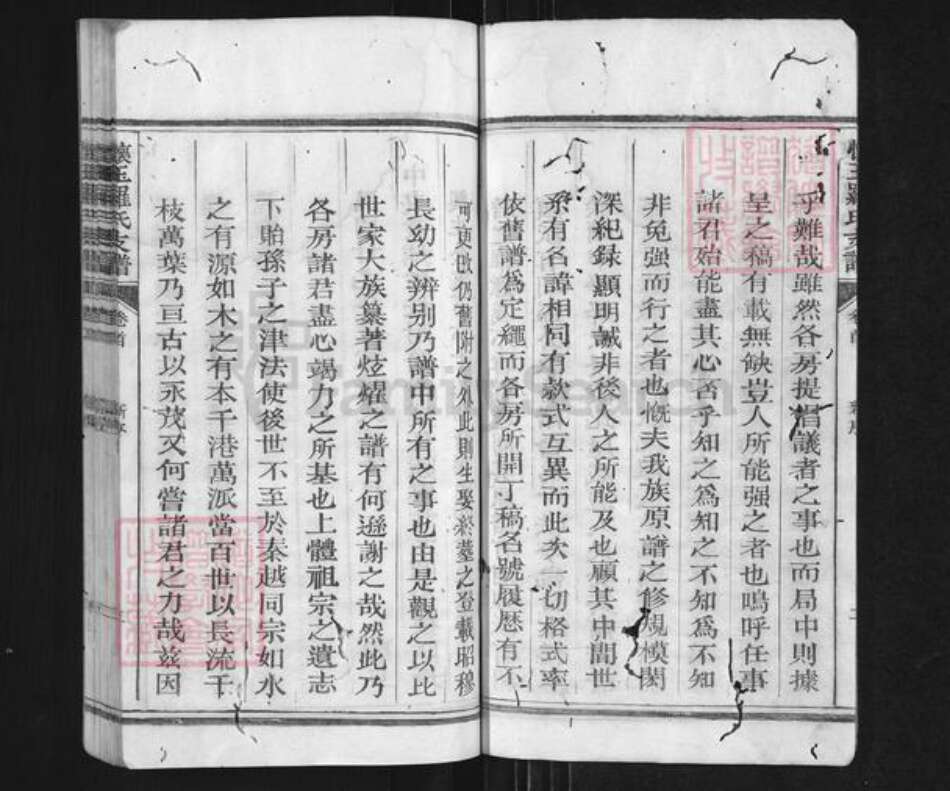 乎難哉雖然各房提倡議者之事也而局中則據
呈之稿有載無缺豈人所能强之者也嗚呼任事
諸君殆能盡其心否乎知之爲知之不知爲不知
非免强而行之者也慨夫我族原譜之修規模閎
深紀録顯明誠非後人之所能及也顧其中間世
系有名諱相同有款式互異而此次一切格式率
依舊譜爲定繩而各房所開丁稿名號履歷有不
可更改仍舊附之外此則生娶終墓之登載昭穆
長幼之辨别乃譜中所有之事也由是觀之以比
世家大族纂著炫燿之譜有何遜謝之哉然此乃
各房諸君盡心竭力之所基也上體祖宗之遺志
下貽孫子之津法使後世不至於秦越同宗如水
之有源如木之有本千港萬派當百世以長流千
枝萬葉乃亘古以永茂又何嘗諸君之力哉兹因
懷玉羅氏支譜
卷首
新序